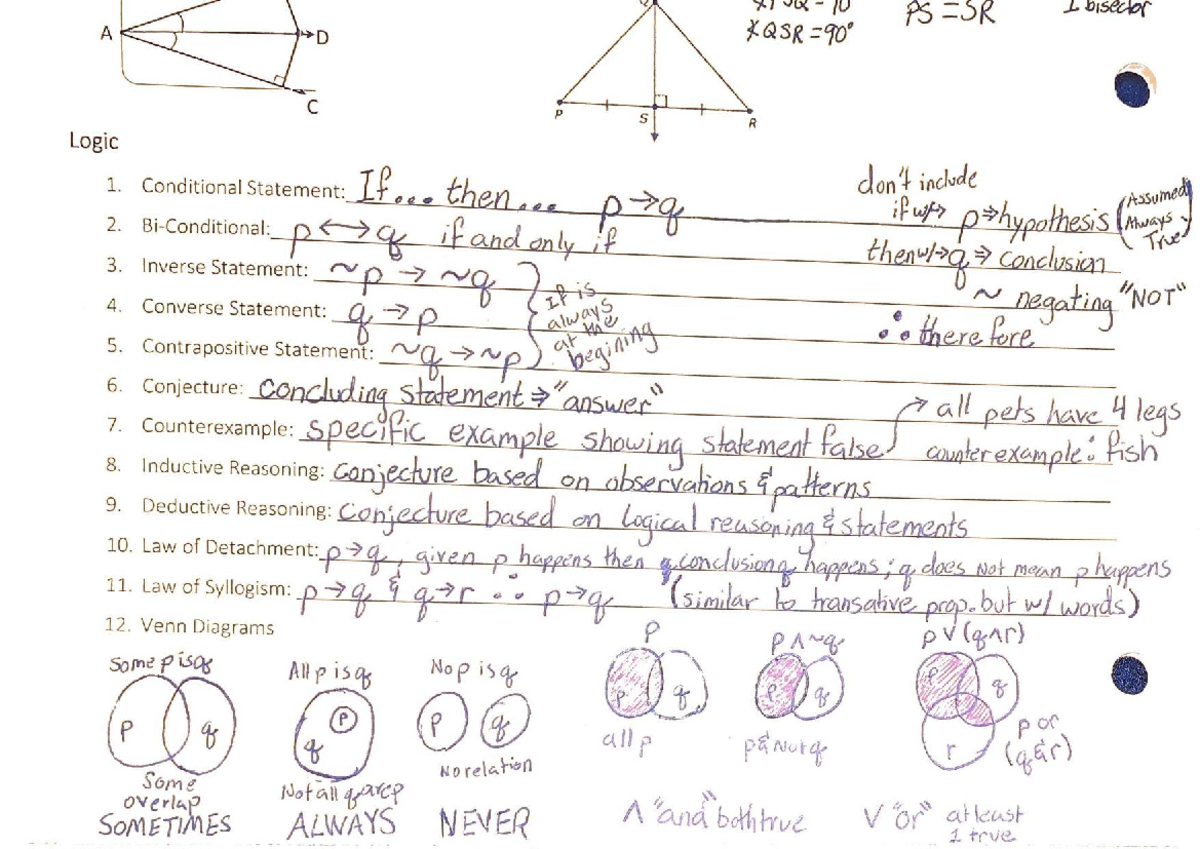 A
D
C
P
S
R
∡QSR = 90°
PS = SR
⊥ bisector
Logic
1. Conditional Statement: If... then... p→q
don't include
if w/→ p⇒hypothesis (Assumed Always True)
2. Bi-Conditional: p↔q if and only if
then w/→ q⇒ conclusion
3. Inverse Statement: ~p → ~q
~ negating "NOT"
4. Converse Statement: q→p
If is always at the begining
∴ therefore
5. Contrapositive Statement: ~q→~p
6. Conjecture: concluding statement ⇒ "answer"
→ all pets have 4 legs
7. Counterexample: specific example showing statement false
counterexample: fish
8. Inductive Reasoning: conjecture based on observations & patterns
9. Deductive Reasoning: conjecture based on logical reasoning & statements
10. Law of Detachment: p→q, given p happens then conclusion q happens; q does not mean p happens
11. Law of Syllogism: p→q & q→r ∴ p→q (similar to transative prop. but w/ words)
12. Venn Diagrams
Some p is q
All p is q
No p is q
p
p∧~q
p∨(q∧r)
p q
p q
p q
p q
p q
p q r
Some overlap
Not all q are p
No relation
all p
p & Not q
p or (q & r)
SOMETIMES
ALWAYS
NEVER
∧ "and" both true
∨ "or" at least 1 true